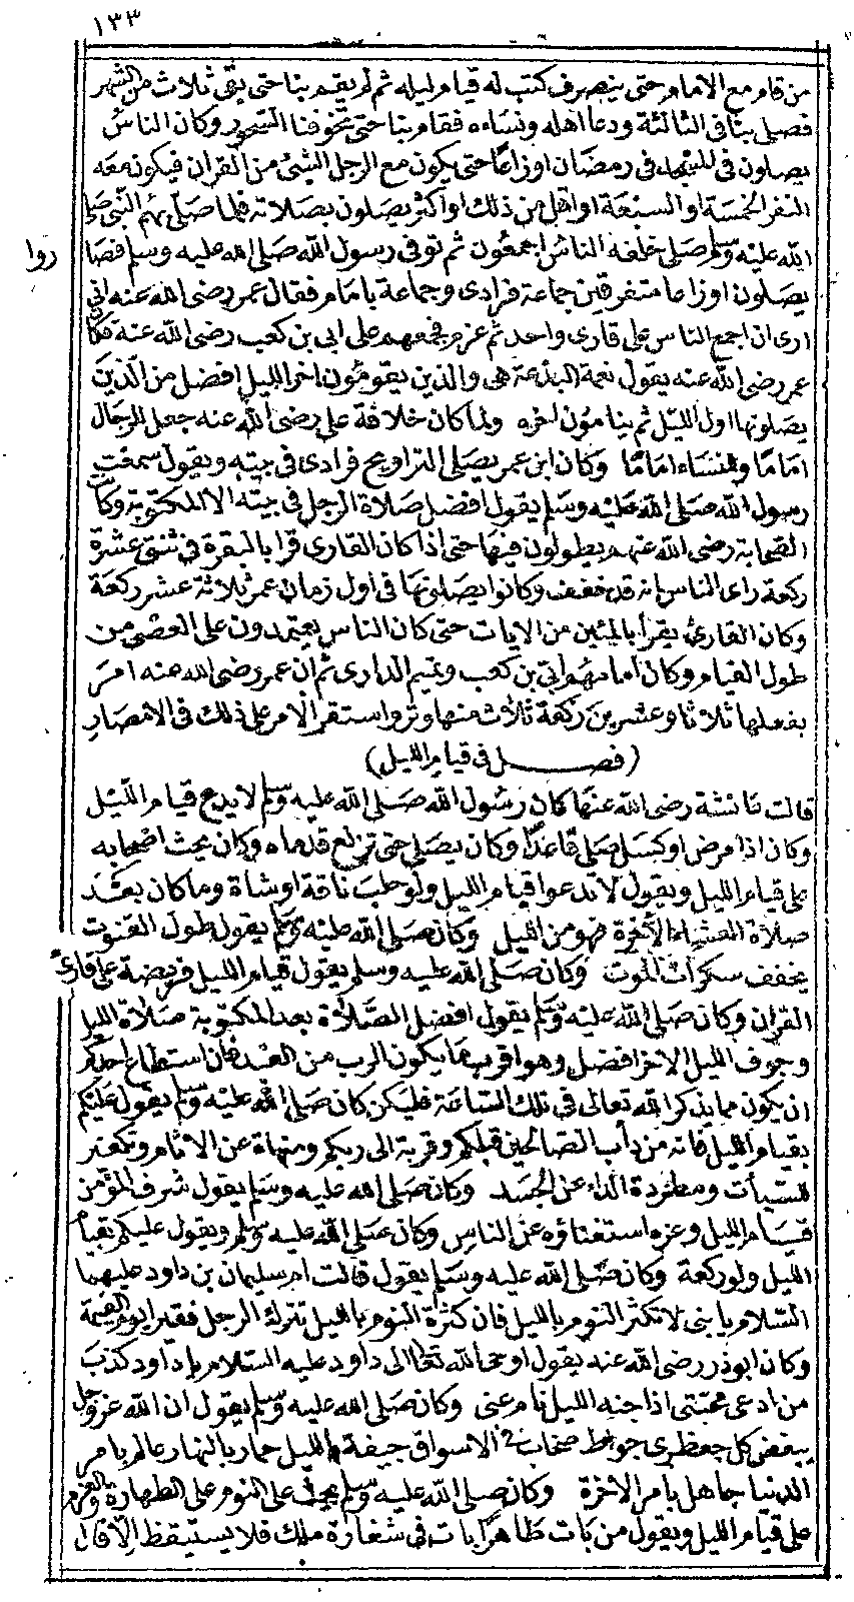 ١٣٣
من قام مع الامام حتى ينصرف كتب له قيام ليله ثم لم يقم بنا حتى بقى ثلاث من الشهر
فصلى بنا فى الثالثة ودعا اهله ونساءه فقام بنا حتى تخوفنا السحور وكان الناس
يصلون فى المسجد فى رمضان اوزاعا حتى يكون مع الرجل الشئ من القرآن فيكون معه
النفر الخمسة او السبعة او اقل من ذلك او اكثر يصلون بصلاته فلما صلى بهم النبى صلى
الله عليه وسلم صلى خلفه الناس اجمعون ثم توفى رسول الله صلى الله عليه وسلم فصا
روا
يصلون اوزاعا متفرقين جماعة فرادى وجماعة بامام فقال عمر رضى الله عنه انى
ارى ان اجمع الناس على قارى واحد ثم عزم فجمعهم على ابى بن كعب رضى الله عنه فكان
عمر رضى الله عنه يقول نعمة البدعة هى والذين يقومون اخر الليل افضل من الذين
يصلونها اول الليل ثم ينامون اخره ولما كان خلافة على رضى الله عنه جعل للرجال
اماما وللنساء اماما وكان ابن عمر يصلى التراويح فرادى فى بيته ويقول سمعت
رسول الله صلى الله عليه وسلم يقول افضل صلاة الرجل فى بيته الا المكتوبة وكان
الصحابة رضى الله عنهم يطولون فيها حتى اذا كان القارى قرا بالبقرة فى ثنتى عشرة
ركعة راى الناس انه قد خفف وكانوا يصلونها فى اول زمان عمر ثلاثة عشر ركعة
وكان القارئ يقرأ بالمئين من الايات حتى كان الناس يعتمدون على العصى من
طول القيام وكان امامهم ابى بن كعب وتميم الدارى ثم ان عمر رضى الله عنه امر
بفعلها ثلاثا وعشرين ركعة ثلاث منها وتر واستقر الامر على ذلك فى الامصار
(فصل فى قيام الليل)
قالت عائشة رضى الله عنها كان رسول الله صلى الله عليه وسلم لا يدع قيام الليل
وكان اذا مرض او كسل صلى قاعدا وكان يصلى حتى تزلع قدماه وكان يحث اصحابه
على قيام الليل ويقول لا تدعوا قيام الليل ولو حلب ناقة او شاة وما كان بعد
صلاة العشاء الاخرة فهو من الليل وكان صلى الله عليه وسلم يقول طول القنوت
يخفف سكرات الموت وكان صلى الله عليه وسلم يقول قيام الليل فريضة على قارئ
القرآن وكان صلى الله عليه وسلم يقول افضل الصلاة بعد المكتوبة صلاة الليل
وجوف الليل الاخر افضل وهو اقرب ما يكون الرب من العبد فان استطاع احدكم
ان يكون ممن يذكر الله تعالى فى تلك الساعة فليكن كان صلى الله عليه وسلم يقول عليكم
بقيام الليل فانه من دأب الصالحين قبلكم وقربة الى ربكم ومنهاة عن الاثام وتكفير
للسيأت ومطردة الداء عن الجسد وكان صلى الله عليه وسلم يقول شرف المؤمن
قيام الليل وعزه استغناؤه عن الناس وكان صلى الله عليه وسلم ويقول عليكم بقيام
الليل ولو ركعة وكان صلى الله عليه وسلم يقول قالت ام سليمان بن داود عليهما
السلام يا بنى لا تكثر النوم بالليل فان كثرة النوم بالليل تترك الرجل فقيرا يوم القيمة
وكان ابو ذر رضى الله عنه يقول اوحى الله تعالى الى داود عليه السلام يا داود كذب
من ادعى محبتى اذا جنه الليل نام عنى وكان صلى الله عليه وسلم يقول ان الله عز وجل
يبغض كل جعظرى جواظ صخاب فى الاسواق جيفة بالليل حمار بالنهار عالم بامر
الدنيا جاهل بامر الاخرة وكان صلى الله عليه وسلم يحث على النوم على الطهارة والعزم
على قيام الليل ويقول من بات طاهرا بات فى شعاره ملك فلا يستيقظ الا قال